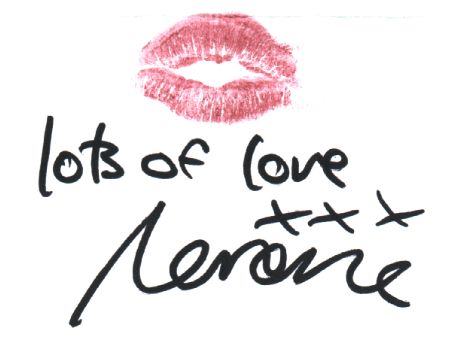 lots of love
xxx